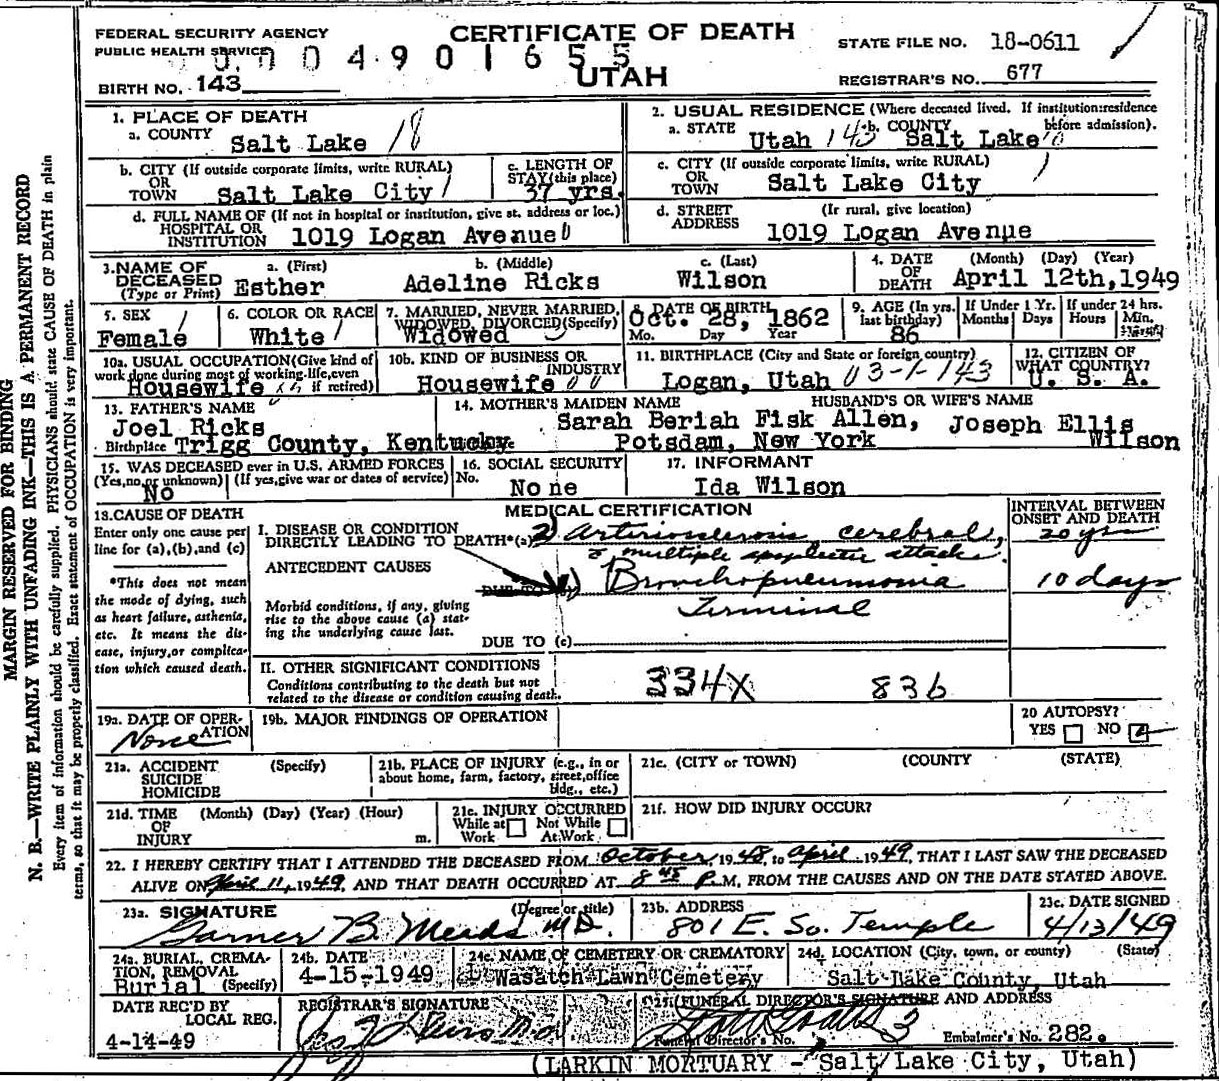 FEDERAL SECURITY AGENCY
PUBLIC HEALTH SERVICE
CERTIFICATE OF DEATH
STATE FILE NO. 18-0611
0 0 4 9 0 1 6 5 5
UTAH
BIRTH NO. 143
REGISTRAR'S NO. 677
1. PLACE OF DEATH
a. COUNTY
Salt Lake 18
2. USUAL RESIDENCE (Where deceased lived. If institution:residence before admission).
a. STATE Utah 143 b. COUNTY Salt Lake
b. CITY (If outside corporate limits, write RURAL)
OR
TOWN Salt Lake City
c. LENGTH OF
STAY (this place)
37 yrs.
c. CITY (If outside corporate limits, write RURAL)
OR
TOWN Salt Lake City
d. FULL NAME OF (If not in hospital or institution, give st. address or loc.)
HOSPITAL OR
INSTITUTION 1019 Logan Avenue
d. STREET (If rural, give location)
ADDRESS 1019 Logan Avenue
3. NAME OF DECEASED
(Type or Print)
a. (First) Esther
b. (Middle) Adeline Ricks
c. (Last) Wilson
4. DATE OF DEATH (Month) (Day) (Year)
April 12th, 1949
5. SEX
Female
6. COLOR OR RACE
White
7. MARRIED, NEVER MARRIED,
WIDOWED, DIVORCED (Specify)
Widowed
8. DATE OF BIRTH
Oct. 28, 1862
Mo. Day Year
9. AGE (In yrs. last birthday)
86
If Under 1 Yr.
Months Days
If under 24 hrs.
Hours Min.
10a. USUAL OCCUPATION (Give kind of
work done during most of working-life, even
if retired)
Housewife
10b. KIND OF BUSINESS OR
INDUSTRY
Housewife
11. BIRTHPLACE (City and State or foreign country)
Logan, Utah 03-1-143
12. CITIZEN OF
WHAT COUNTRY?
U. S. A.
13. FATHER'S NAME
Joel Ricks
Birthplace Trigg County, Kentucky
14. MOTHER'S MAIDEN NAME
Sarah Beriah Fisk Allen,
Potsdam, New York
HUSBAND'S OR WIFE'S NAME
Joseph Ellis
Wilson
15. WAS DECEASED ever in U.S. ARMED FORCES
(Yes, no, or unknown) (If yes, give war or dates of service)
No
16. SOCIAL SECURITY
No.
None
17. INFORMANT
Ida Wilson
18. CAUSE OF DEATH
Enter only one cause per
line for (a), (b), and (c)
*This does not mean
the mode of dying, such
as heart failure, asthenia,
etc. It means the dis-
ease, injury, or complica-
tion which caused death.
MEDICAL CERTIFICATION
INTERVAL BETWEEN
ONSET AND DEATH
I. DISEASE OR CONDITION
DIRECTLY LEADING TO DEATH*(a) Arteriosclerosis cerebral,
20 yrs
& multiple apoplectic attacks
ANTECEDENT CAUSES
DUE TO (b) Bronchopneumonia
10 days
Terminal
Morbid conditions, if any, giving
rise to the above cause (a) stat-
ing the underlying cause last.
DUE TO (c)
II. OTHER SIGNIFICANT CONDITIONS
Conditions contributing to the death but not
related to the disease or condition causing death.
334X 83b
19a. DATE OF OPER-
ATION
None
19b. MAJOR FINDINGS OF OPERATION
20 AUTOPSY?
YES NO
21a. ACCIDENT (Specify)
SUICIDE
HOMICIDE
21b. PLACE OF INJURY (e.g., in or
about home, farm, factory, street, office
bldg., etc.)
21c. (CITY or TOWN) (COUNTY (STATE)
21d. TIME (Month) (Day) (Year) (Hour)
OF
INJURY m.
21e. INJURY OCCURRED
While at Work Not While At Work
21f. HOW DID INJURY OCCUR?
22. I HEREBY CERTIFY THAT I ATTENDED THE DECEASED FROM October, 1948, to April 1949, THAT I LAST SAW THE DECEASED
ALIVE ON April 11, 1949, AND THAT DEATH OCCURRED AT 8 45 P.M, FROM THE CAUSES AND ON THE DATE STATED ABOVE.
23a. SIGNATURE (Degree or title)
Garner B. Meads M.D.
23b. ADDRESS
801 E. So. Temple
23c. DATE SIGNED
4/13/49
24a. BURIAL, CREMA-
TION, REMOVAL
(Specify)
Burial
24b. DATE
4-15-1949
24c. NAME OF CEMETERY OR CREMATORY
Wasatch Lawn Cemetery
24d. LOCATION (City, town, or county) (State)
Salt Lake County, Utah
DATE REC'D BY
LOCAL REG.
4-14-49
REGISTRAR'S SIGNATURE
25. FUNERAL DIRECTOR'S SIGNATURE AND ADDRESS
Funeral Director's No. Embalmer's No. 282.
(LARKIN MORTUARY - Salt Lake City, Utah)
MARGIN RESERVED FOR BINDING
N. B.—WRITE PLAINLY WITH UNFADING INK—THIS IS A PERMANENT RECORD
Every item of information should be carefully supplied. PHYSICIANS should state CAUSE OF DEATH in plain
terms, so that it may be properly classified. Exact statement of OCCUPATION is very important.